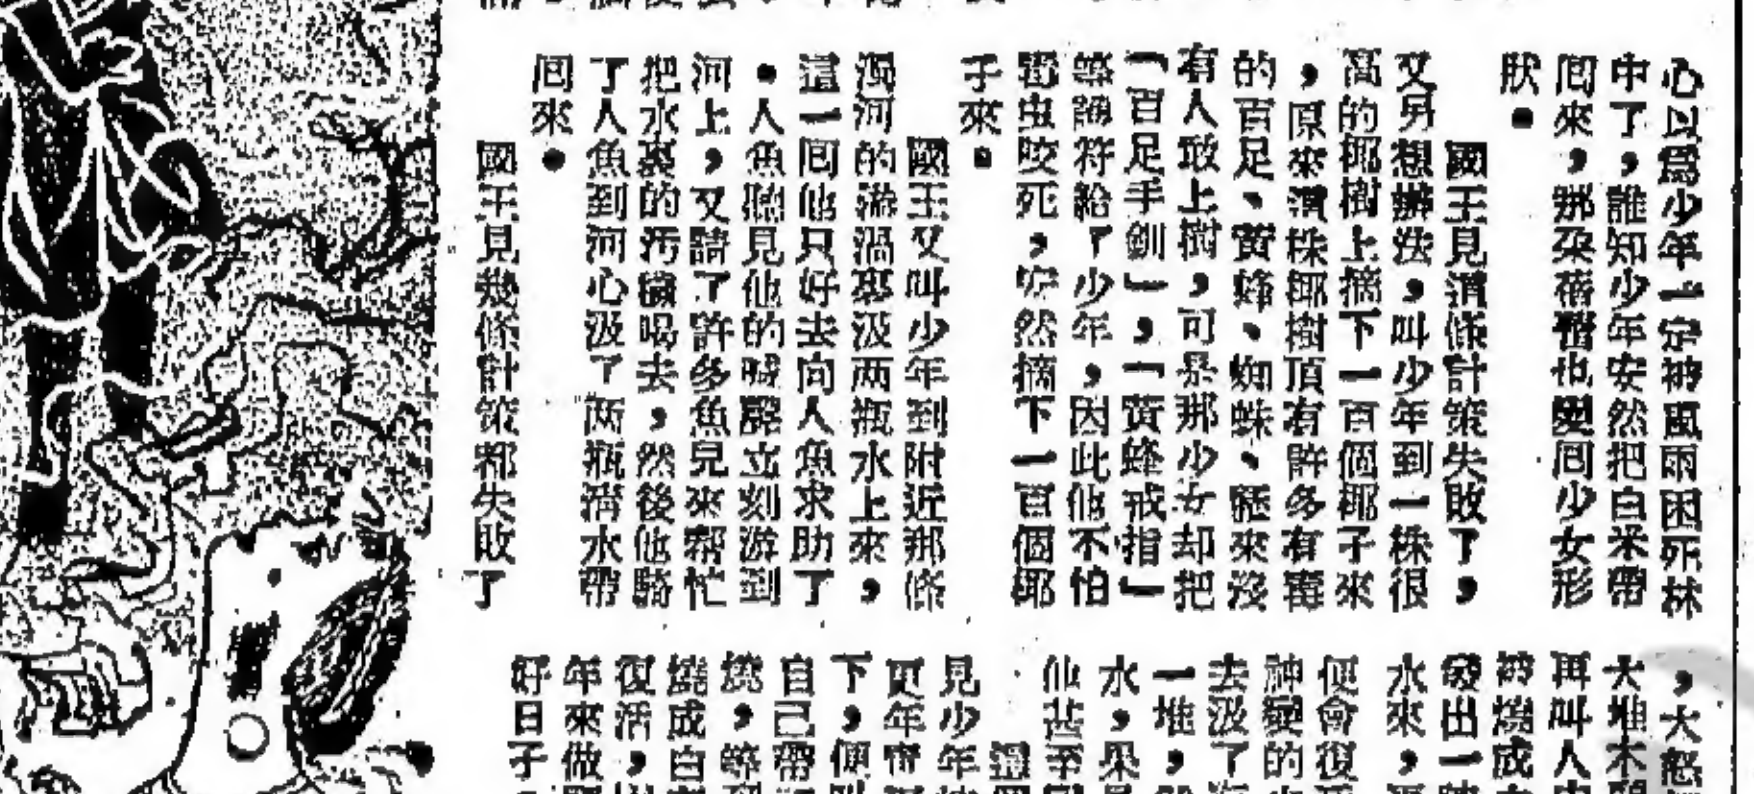 心以爲少年一定被風雨困死林
中了，誰知少年安然把白米帶
囘來，那朵蓓蕾也變囘少女形
狀。
國王見這條計策失敗了，
又另想辦法，叫少年到一株很
高的椰樹上摘下一百個椰子來
，原來這株椰樹頂有許多有毒
的百足、黃蜂、蜘蛛、歷來沒
有人敢上樹，可是那少女却把
「百足手釧」，「黃蜂戒指」
等護符給了少年，因此他不怕
毒虫咬死，安然摘下一百個椰
子來。
國王又叫少年到附近那條
濁河的漩渦裏汲两瓶水上來，
這一囘他只好去向人魚求助了
。人魚聽見他的喊聲立刻游到
河上，又請了許多魚兒來幫忙
把水裏的汚穢喝去，然後他騎
了人魚到河心汲了两瓶淸水帶
囘來。
國王見幾條計策都失敗了
，大怒
大堆木
再叫人
被燒成
發出一
水來，
便會復
神變的
去汲了
一堆，
水，果
仙芭
見少年
更年
下，便
自己帶
燒，等
燒成白
復活，
年來做
好日子